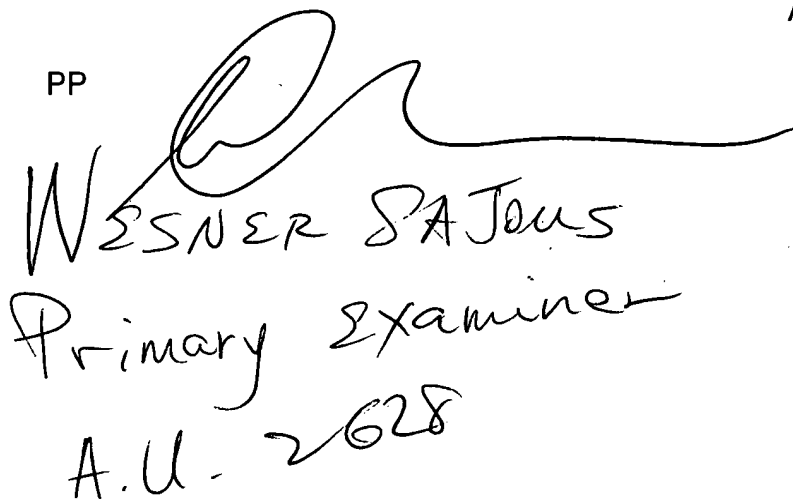 PP
WESNER SAJOUS
Primary Examiner
A.U. 2628